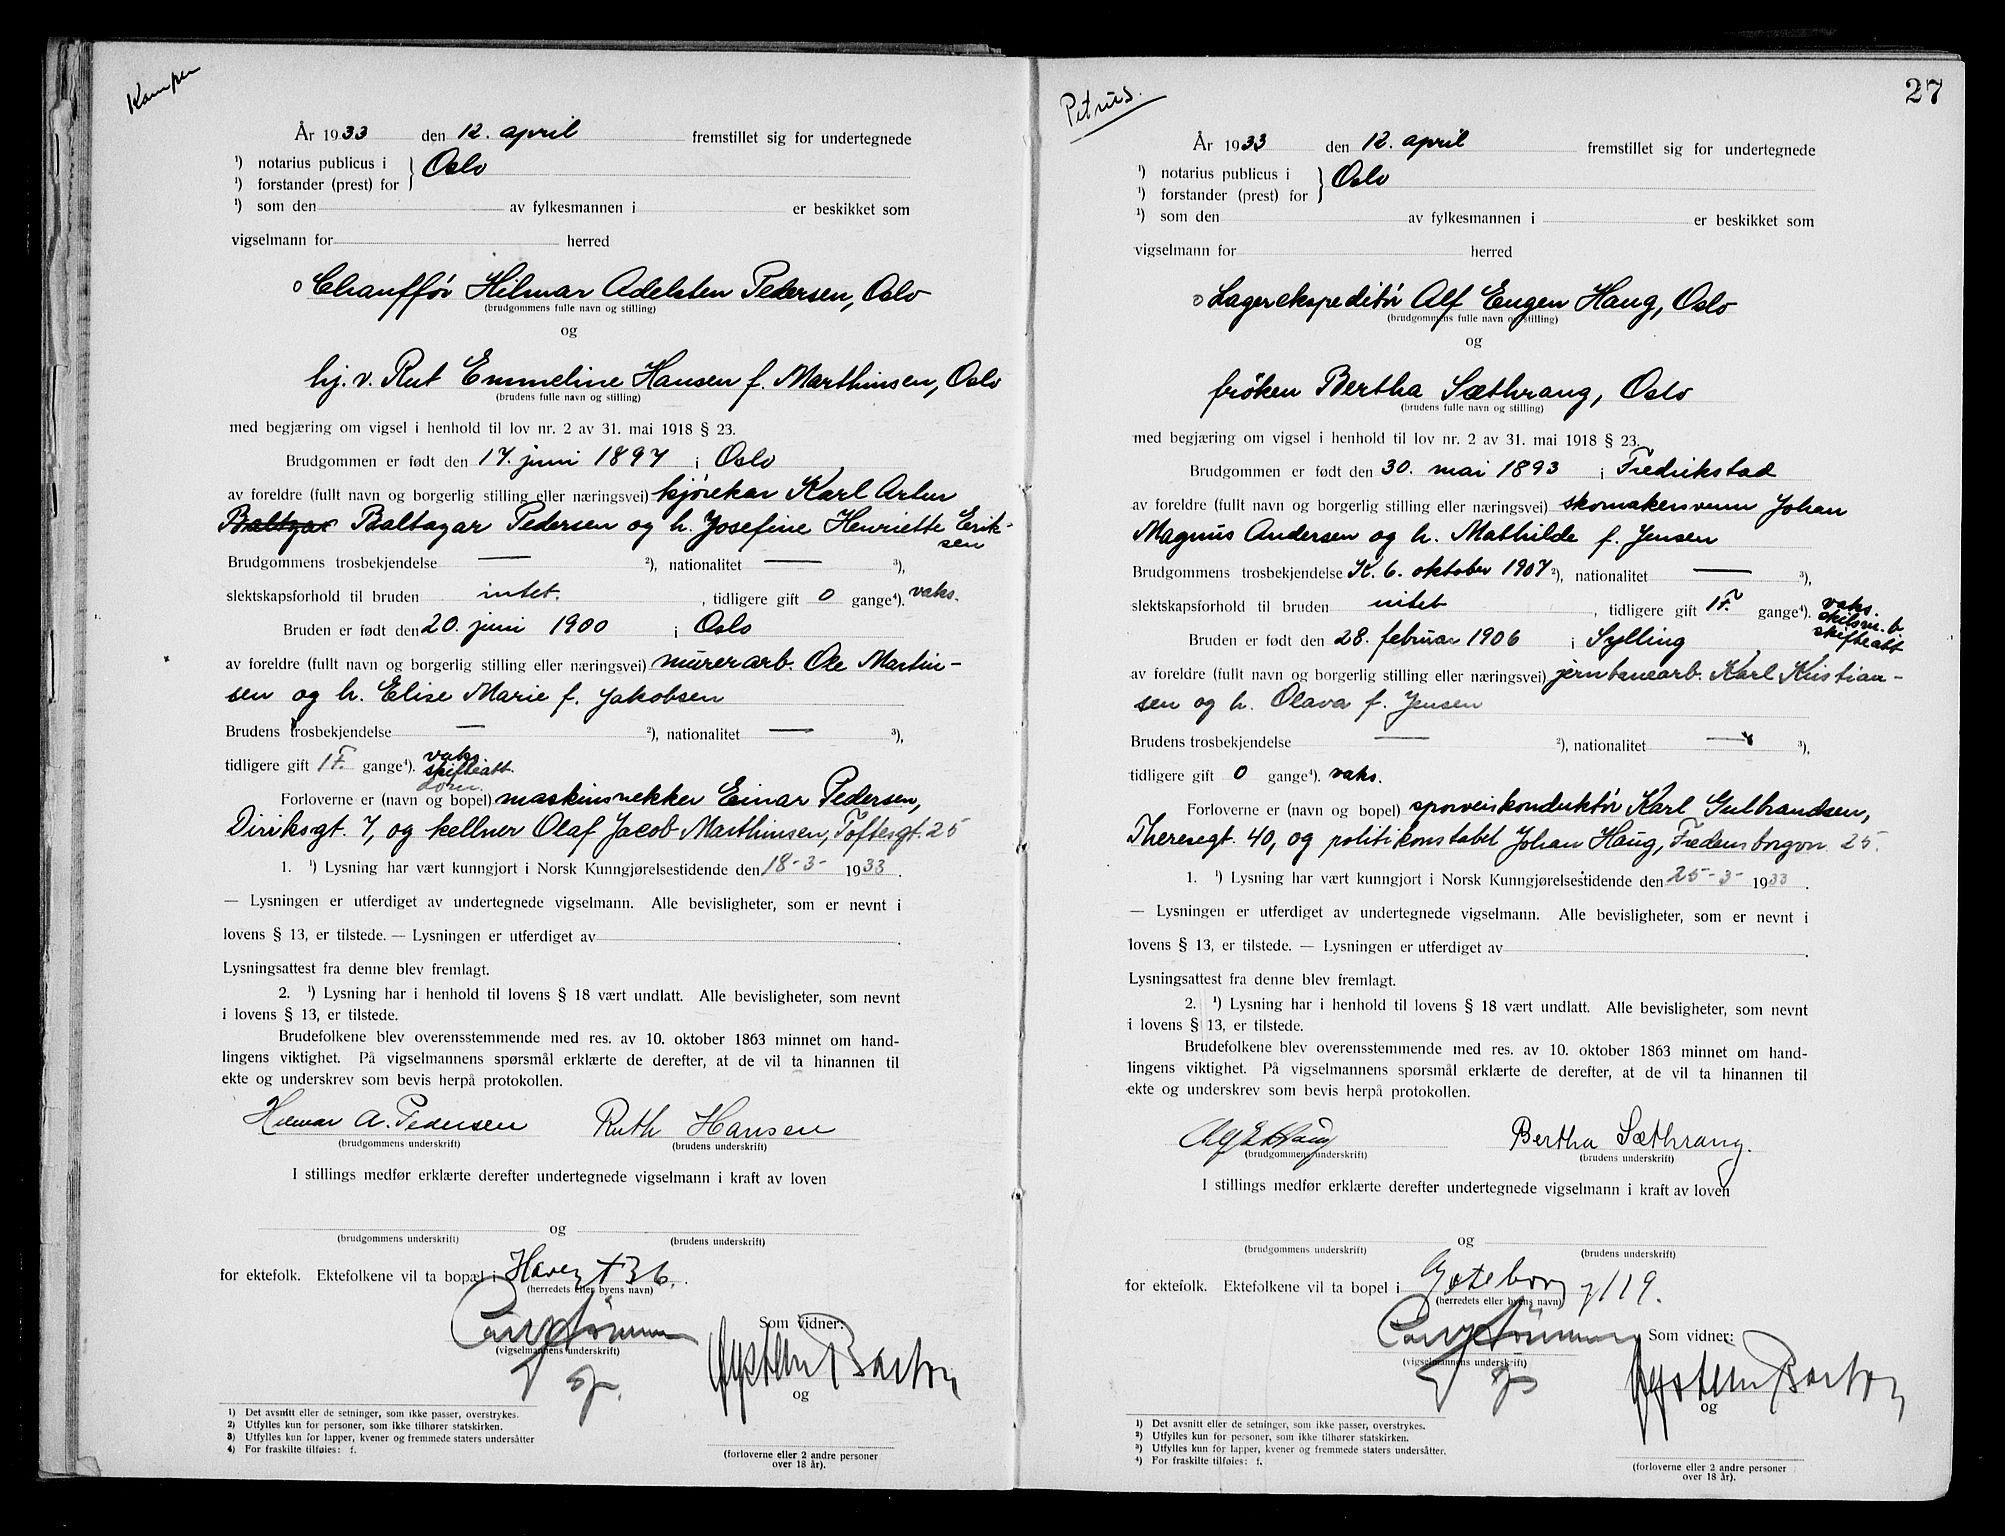 Kampen
År 1933 den 12. april fremstillet sig for undertegnede
1) notarius publicus i } Oslo
1) forstander (prest) for
1) som den av fylkesmannen i er beskikket som
vigselmann for herred
o Chauffør Hilmar Adelsten Pedersen, Oslo
(brudgommens fulle navn og stilling)
og
hj. v. Rut Emmeline Hansen f. Marthinsen, Oslo
(brudens fulle navn og stilling)
med begjæring om vigsel i henhold til lov nr. 2 av 31. mai 1918 § 23.
Brudgommen er født den 17. juni 1897 i Oslo
av foreldre (fullt navn og borgerlig stilling eller næringsvei) kjørekar Karl Artur
Baltzar Baltazar Pedersen og h. Josefine Henriette Erik-
sen
Brudgommens trosbekjendelse — 2), nationalitet — 3),
slektskapsforhold til bruden intet. , tidligere gift 0 gange4). vaks.
Bruden er født den 20. juni 1900 i Oslo
av foreldre (fullt navn og borgerlig stilling eller næringsvei) murerarb. Ole Martin-
sen og h. Elise Marie f. Jakobsen
Brudens trosbekjendelse — 2), nationalitet — 3),
tidligere gift 1 F. gange4). vaks.
skifteatt.
dom.
Forloverne er (navn og bopel) maskinsnekker Einar Pedersen,
Diriksgt. 7, og kellner Olaf Jacob Marthinsen, Toftesgt. 25
1. 1) Lysning har vært kunngjort i Norsk Kunngjørelsestidende den 18-3- 1933.
— Lysningen er utferdiget av undertegnede vigselmann. Alle bevisligheter, som er nevnt i
lovens § 13, er tilstede. — Lysningen er utferdiget av .
Lysningsattest fra denne blev fremlagt.
2. 1) Lysning har i henhold til lovens § 18 vært undlatt. Alle bevisligheter, som nevnt
i lovens § 13, er tilstede.
Brudefolkene blev overensstemmende med res. av 10. oktober 1863 minnet om hand-
lingens viktighet. På vigselmannens spørsmål erklærte de derefter, at de vil ta hinannen til
ekte og underskrev som bevis herpå protokollen.
Hilmar A. Pedersen Ruth Hansen
(brudgommens underskrift) (brudens underskrift)
I stillings medfør erklærte derefter undertegnede vigselmann i kraft av loven
og
(brudgommens underskrift) (brudens underskrift)
for ektefolk. Ektefolkene vil ta bopæl i
(herredets eller byens navn)
Som vidner:
(vigselmannens underskrift)
Øystein
og
1) Det avsnitt eller de setninger, som ikke passer, overstrykes.
2) Utfylles kun for personer, som ikke tilhører statskirken.
3) Utfylles kun for lapper, kvener og fremmede staters undersåtter
4) For fraskilte tilføies: f.
(forloverne eller 2 andre personer
over 18 år).
27
Petrus.
År 1933 den 12. april fremstillet sig for undertegnede
1) notarius publicus i } Oslo
1) forstander (prest) for
1) som den av fylkesmannen i er beskikket som
vigselmann for herred
o Lagerekspeditør Alf Eugen Haug, Oslo
(brudgommens fulle navn og stilling)
og
frøken Bertha Sæthrang, Oslo
(brudens fulle navn og stilling)
med begjæring om vigsel i henhold til lov nr. 2 av 31. mai 1918 § 23.
Brudgommen er født den 30. mai 1893 i Fredrikstad
av foreldre (fullt navn og borgerlig stilling eller næringsvei) skomakersvenn Johan
Magnus Andersen og h. Mathilde f. Jensen
Brudgommens trosbekjendelse K. 6. oktober 1907 2), nationalitet — 3),
slektskapsforhold til bruden intet , tidligere gift 1 F. gange4). vaks.
skilsm. b
skifteatt
Bruden er født den 28. februar 1906 i Sylling
av foreldre (fullt navn og borgerlig stilling eller næringsvei) jernbanearb. Karl Kristian-
sen og h. Olava f. Jensen
Brudens trosbekjendelse — 2), nationalitet — 3),
tidligere gift 0 gange4). vaks.
Forloverne er (navn og bopel) sporveiskonduktør Karl Gulbrandsen,
Theresegt. 40, og politikonstabel Johan Haug, Fredensborgvn. 25.
1. 1) Lysning har vært kunngjort i Norsk Kunngjørelsestidende den 25-3- 1933.
— Lysningen er utferdiget av undertegnede vigselmann. Alle bevisligheter, som er nevnt i
lovens § 13, er tilstede. — Lysningen er utferdiget av .
Lysningsattest fra denne blev fremlagt.
2. 1) Lysning har i henhold til lovens § 18 vært undlatt. Alle bevisligheter, som nevnt
i lovens § 13, er tilstede.
Brudefolkene blev overensstemmende med res. av 10. oktober 1863 minnet om hand-
lingens viktighet. På vigselmannens spørsmål erklærte de derefter, at de vil ta hinannen til
ekte og underskrev som bevis herpå protokollen.
Alf E Haug Bertha Sæthrang.
(brudgommens underskrift) (brudens underskrift)
I stillings medfør erklærte derefter undertegnede vigselmann i kraft av loven
og
(brudgommens underskrift) (brudens underskrift)
for ektefolk. Ektefolkene vil ta bopel i Gøteborg 119.
(herredets eller byens navn)
Som vidner:
(vigselmannens underskrift)
Øystein
og
1) Det avsnitt eller de setninger, som ikke passer, overstrykes.
2) Utfylles kun for personer, som ikke tilhører statskirken.
3) Utfylles kun for lapper, kvener og fremmede staters undersåtter.
4) For fraskilte tilføies: f.
(forloverne eller 2 andre personer
over 18 år).